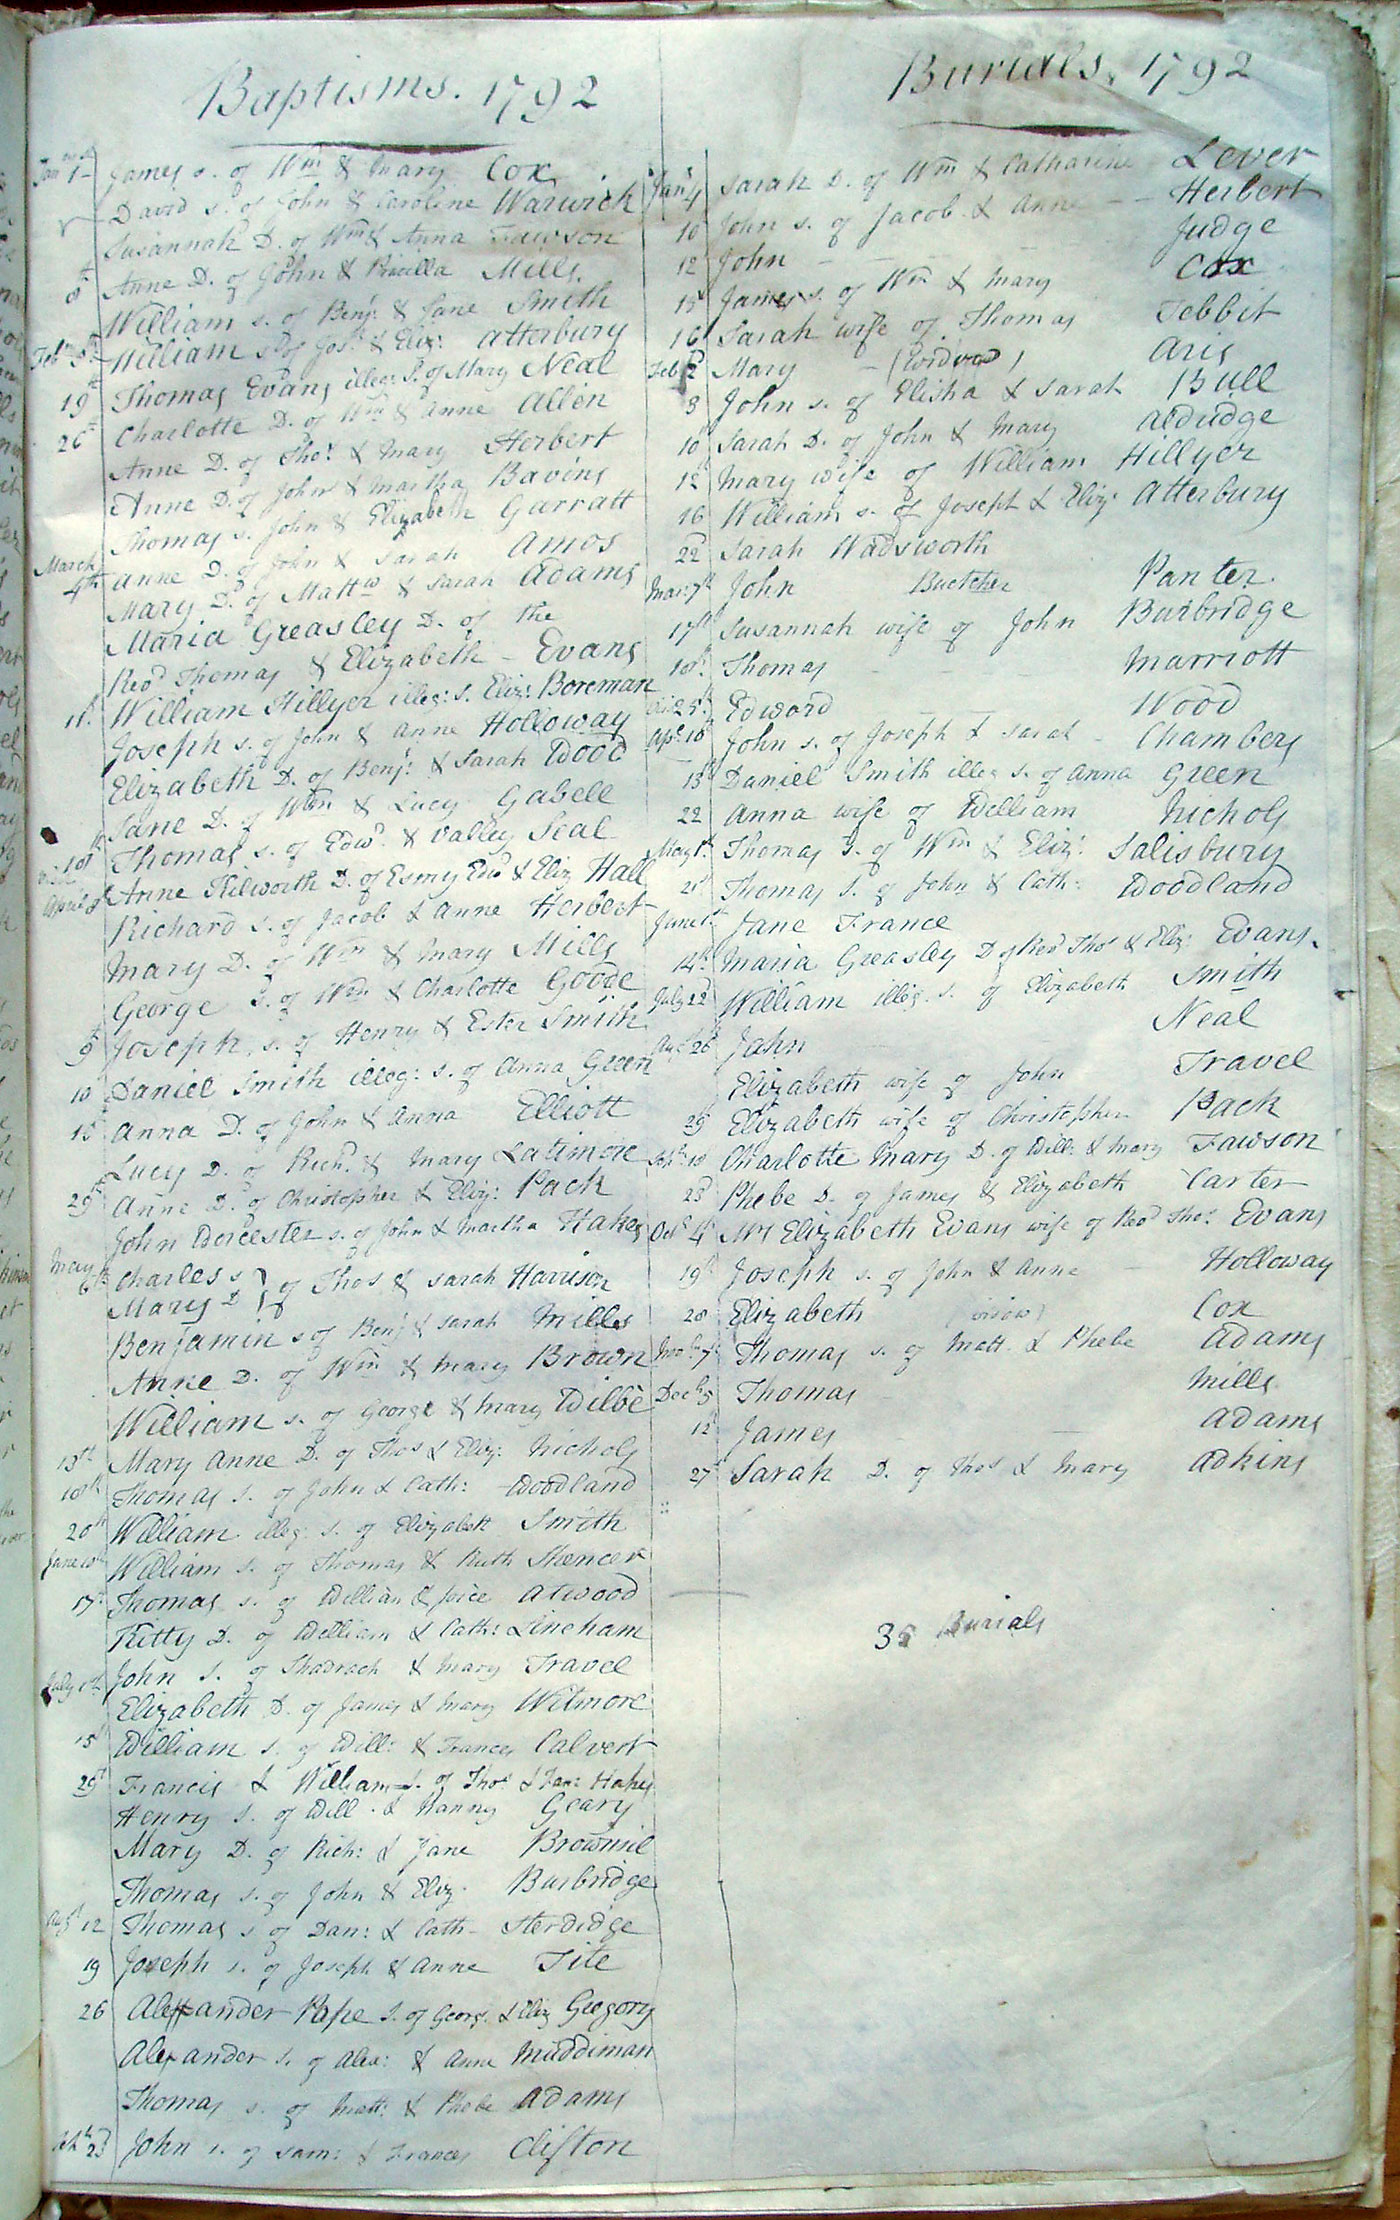 Baptisms. 1792
Jany 1st James s. of Wm & Mary Cox
David s. of John & Caroline Warwick
Susannah D. of Wm & Anna Fawson
8th Anne D. of John & Priscilla Mills.
William s. of Benj: & Jane Smith
Feb 5th William s. of Jos: & Eliz: Atterbury
19th Thomas Evans illeg: S. of Mary Neal
26th Charlotte D. of Wm & Anne Allen
Anne D. of Thos. & Mary Herbert
Anne D. of John & Martha Bavins
Thomas s. John & Elizabeth Garratt
March 4th Anne D. of John & Sarah Amos
Mary D. of Mattw & Sarah Adams
Maria Greasley D. of the
Revd Thomas & Elizabeth - Evans
11th William Hillyer illeg: s. Eliz: Boreman
Joseph s. of John & Anne Holloway
Elizabeth D. of Benj: & Sarah Wood
Jane D. of Wm & Lucy Gabell
18th Thomas s. of Edwd & Valley Seal
April 8th Anne Kilworth D. of Esmy Edwd & Eliz Hall
Richard s. of Jacob & Anne Herbert
Mary D. of Wm & Mary Mills
George S. of Wm & Charlotte Goode
9th Joseph, s. of Henry & Ester Smith
10 Daniel Smith illeg: s. of Anna Green
15 Anna D. of John & Anna Elliott
Lucy D. of Richd & Mary Latimore
29th Anne D. of Christopher & Eliz: Pack
John Worcester s. of John & Martha Hakes
May 6th Charles s
Mary D } of Thos & Sarah Harrison
Benjamin s of Benj & Sarah Mills
Anne D. of Wm & Mary Brown
William s. of George & Mary Dilbe
13th Mary Anne D. of Thos & Eliz: Nichols
18th Thomas S. of John & Cath: Woodland
20th William illeg: s. of Elizabeth Smith
June 10th William s. of Thomas & Ruth Spencer
17th Thomas s. of William & Joice Atwood
Kitty D. of William & Cath: Lineham
July 1st John S. of Shadrach & Mary Travel
Elizabeth D. of James & Mary Witmore
15th William s. of Will: & Frances Calvert
29th Francis & William S. of Thos & Fan: Hakes
Henry s. of Will. & Nanny Geary
Mary D. of Rich: & Jane Brownie
Thomas s. of John & Eliz. Burbridge
Augst 12 Thomas s of Dan: & Cath - Sterdidge
19 Joseph s. of Joseph & Anne Tite
26 Alexander Pape S. of Georg. & Eliz Gregory
Alexander s. of Alex: & Anne Muddiman
Thomas s. of Matt: & Phebe Adams
23d John s. of Sam: & Frances Clifton
Burials, 1792
Jany 4 Sarah D. of Wm & Catharine Lever
10 John s. of Jacob & Anne - - Herbert
12 John - - Judge
15 James s. of Wm & Mary Cox
16 Sarah wife of Thomas Tebbit
Feb 2 Mary - (Widow) Aris
3 John s. of Elisha & Sarah Bull
10 Sarah D. of John & Mary Aldridge
12 Mary wife of William Hillyer
16 William s. of Joseph & Eliz: Atterbury
22 Sarah Wadsworth
Mar: 7th John Butcher Panter.
17th Susannah wife of John Burbridge
18th Thomas - - Marriott
25th Edward Wood
Apl 10th John s. of Joseph & Sarah - Chambers
13th Daniel Smith illeg s. of Anna Green
22 Anna wife of William Nichols
May 1st Thomas s. of Wm & Eliz: Salisbury
21st Thomas S. of John & Cath: Woodland
June 1st Jane France
14th Maria Greasley D of Revd Thos & Eliz: Evans.
July 22d William illeg. s. of Elizabeth Smith
Aug 26 John Neal
Elizabeth wife of John Travel
29 Elizabeth wife of Christopher Pack
Sept: 10 Charlotte Mary D. of Will: & Mary Fawson
23 Phebe D. of James & Elizabeth Carter
Oct 4 Mrs Elizabeth Evans wife of Revd Thos. Evans
19th Joseph s. of John & Anne - Holloway
28 Elizabeth (widow) Cox
7th Thomas s. of Matt. & Phebe Adams
Decb 5 Thomas Mills
12th James Adams
27 Sarah D. of Thos & Mary Adkins
35 Burials